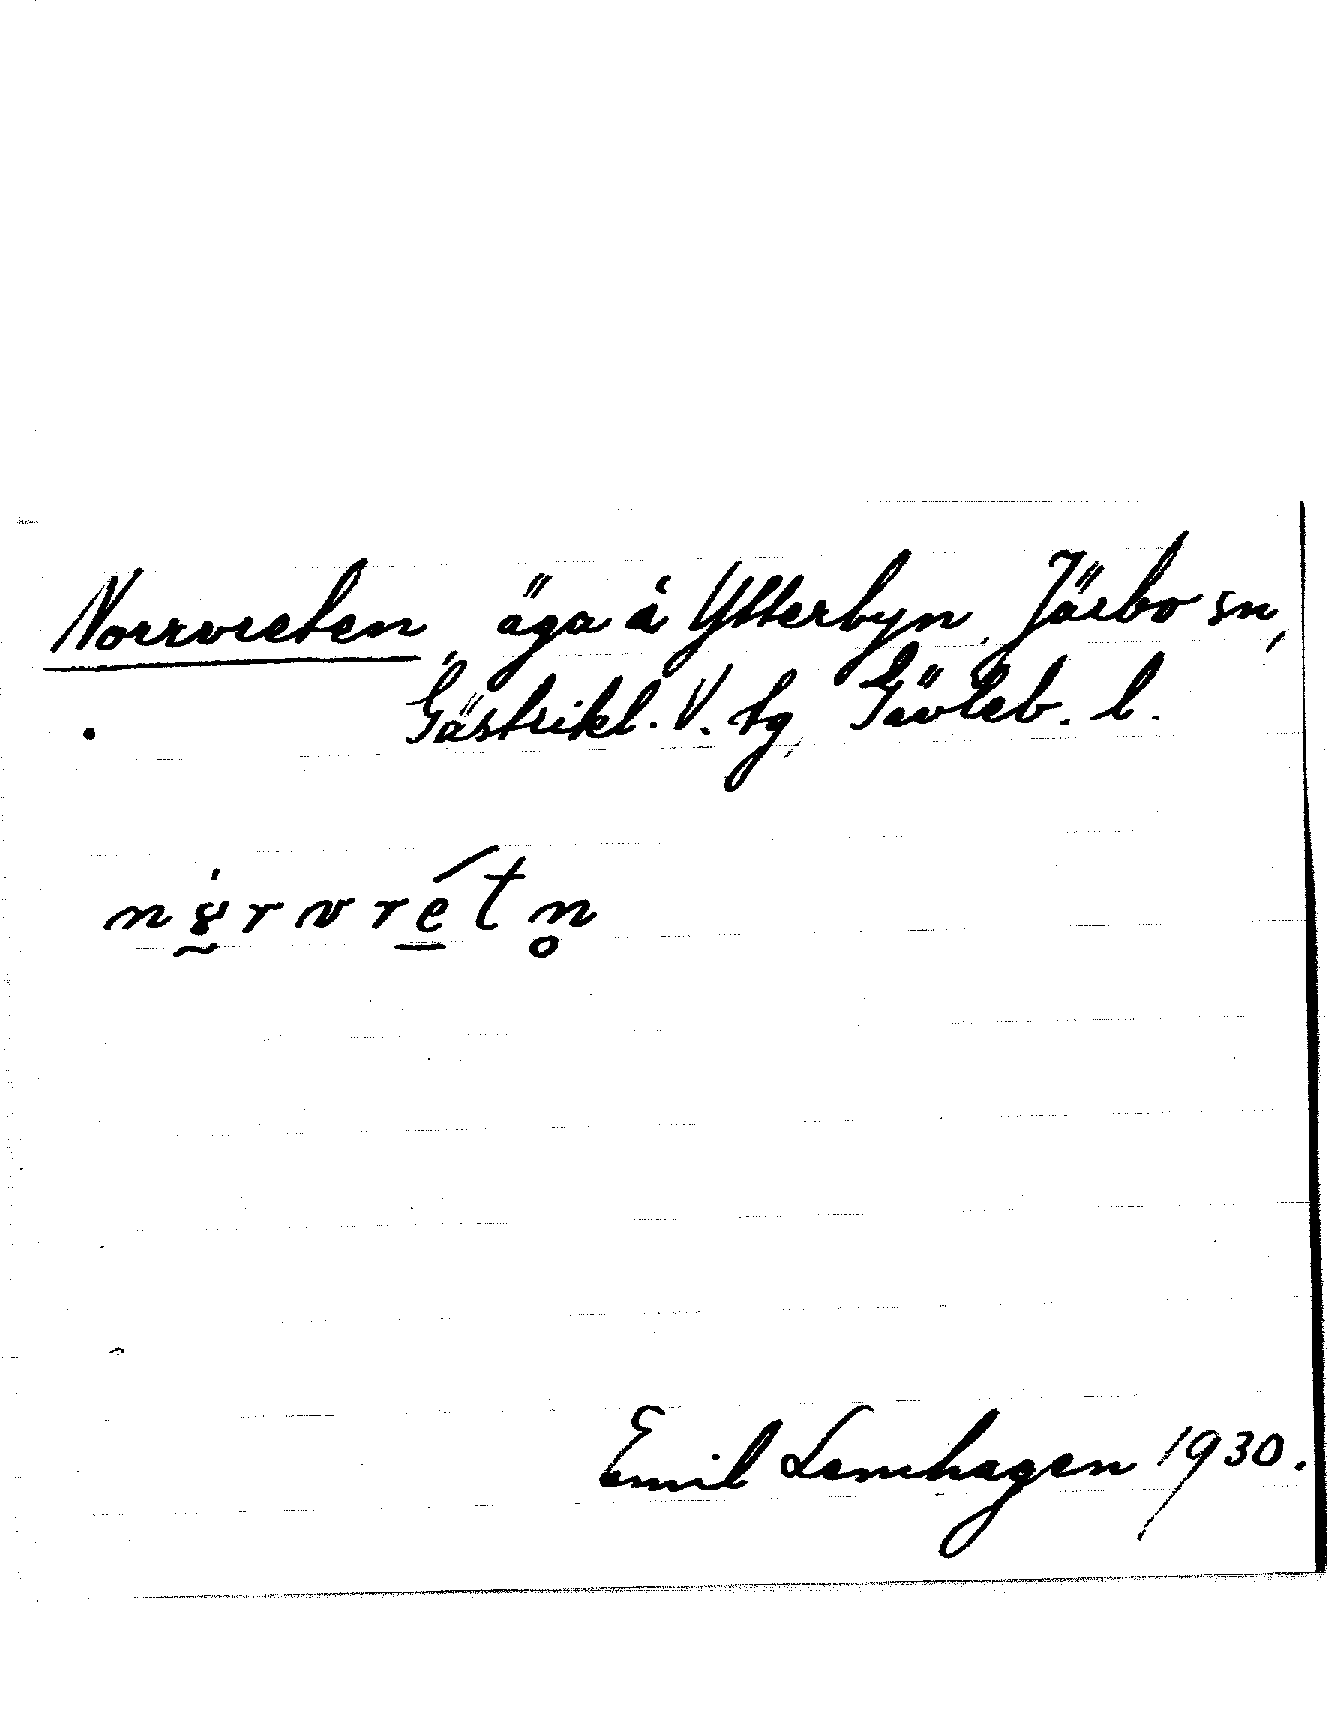 Norrvreten, äga å Ytterbyn, Järbo sn,
Gästrikl. V. tg, Gävleb. l.
Emil Lemhagen 1930.